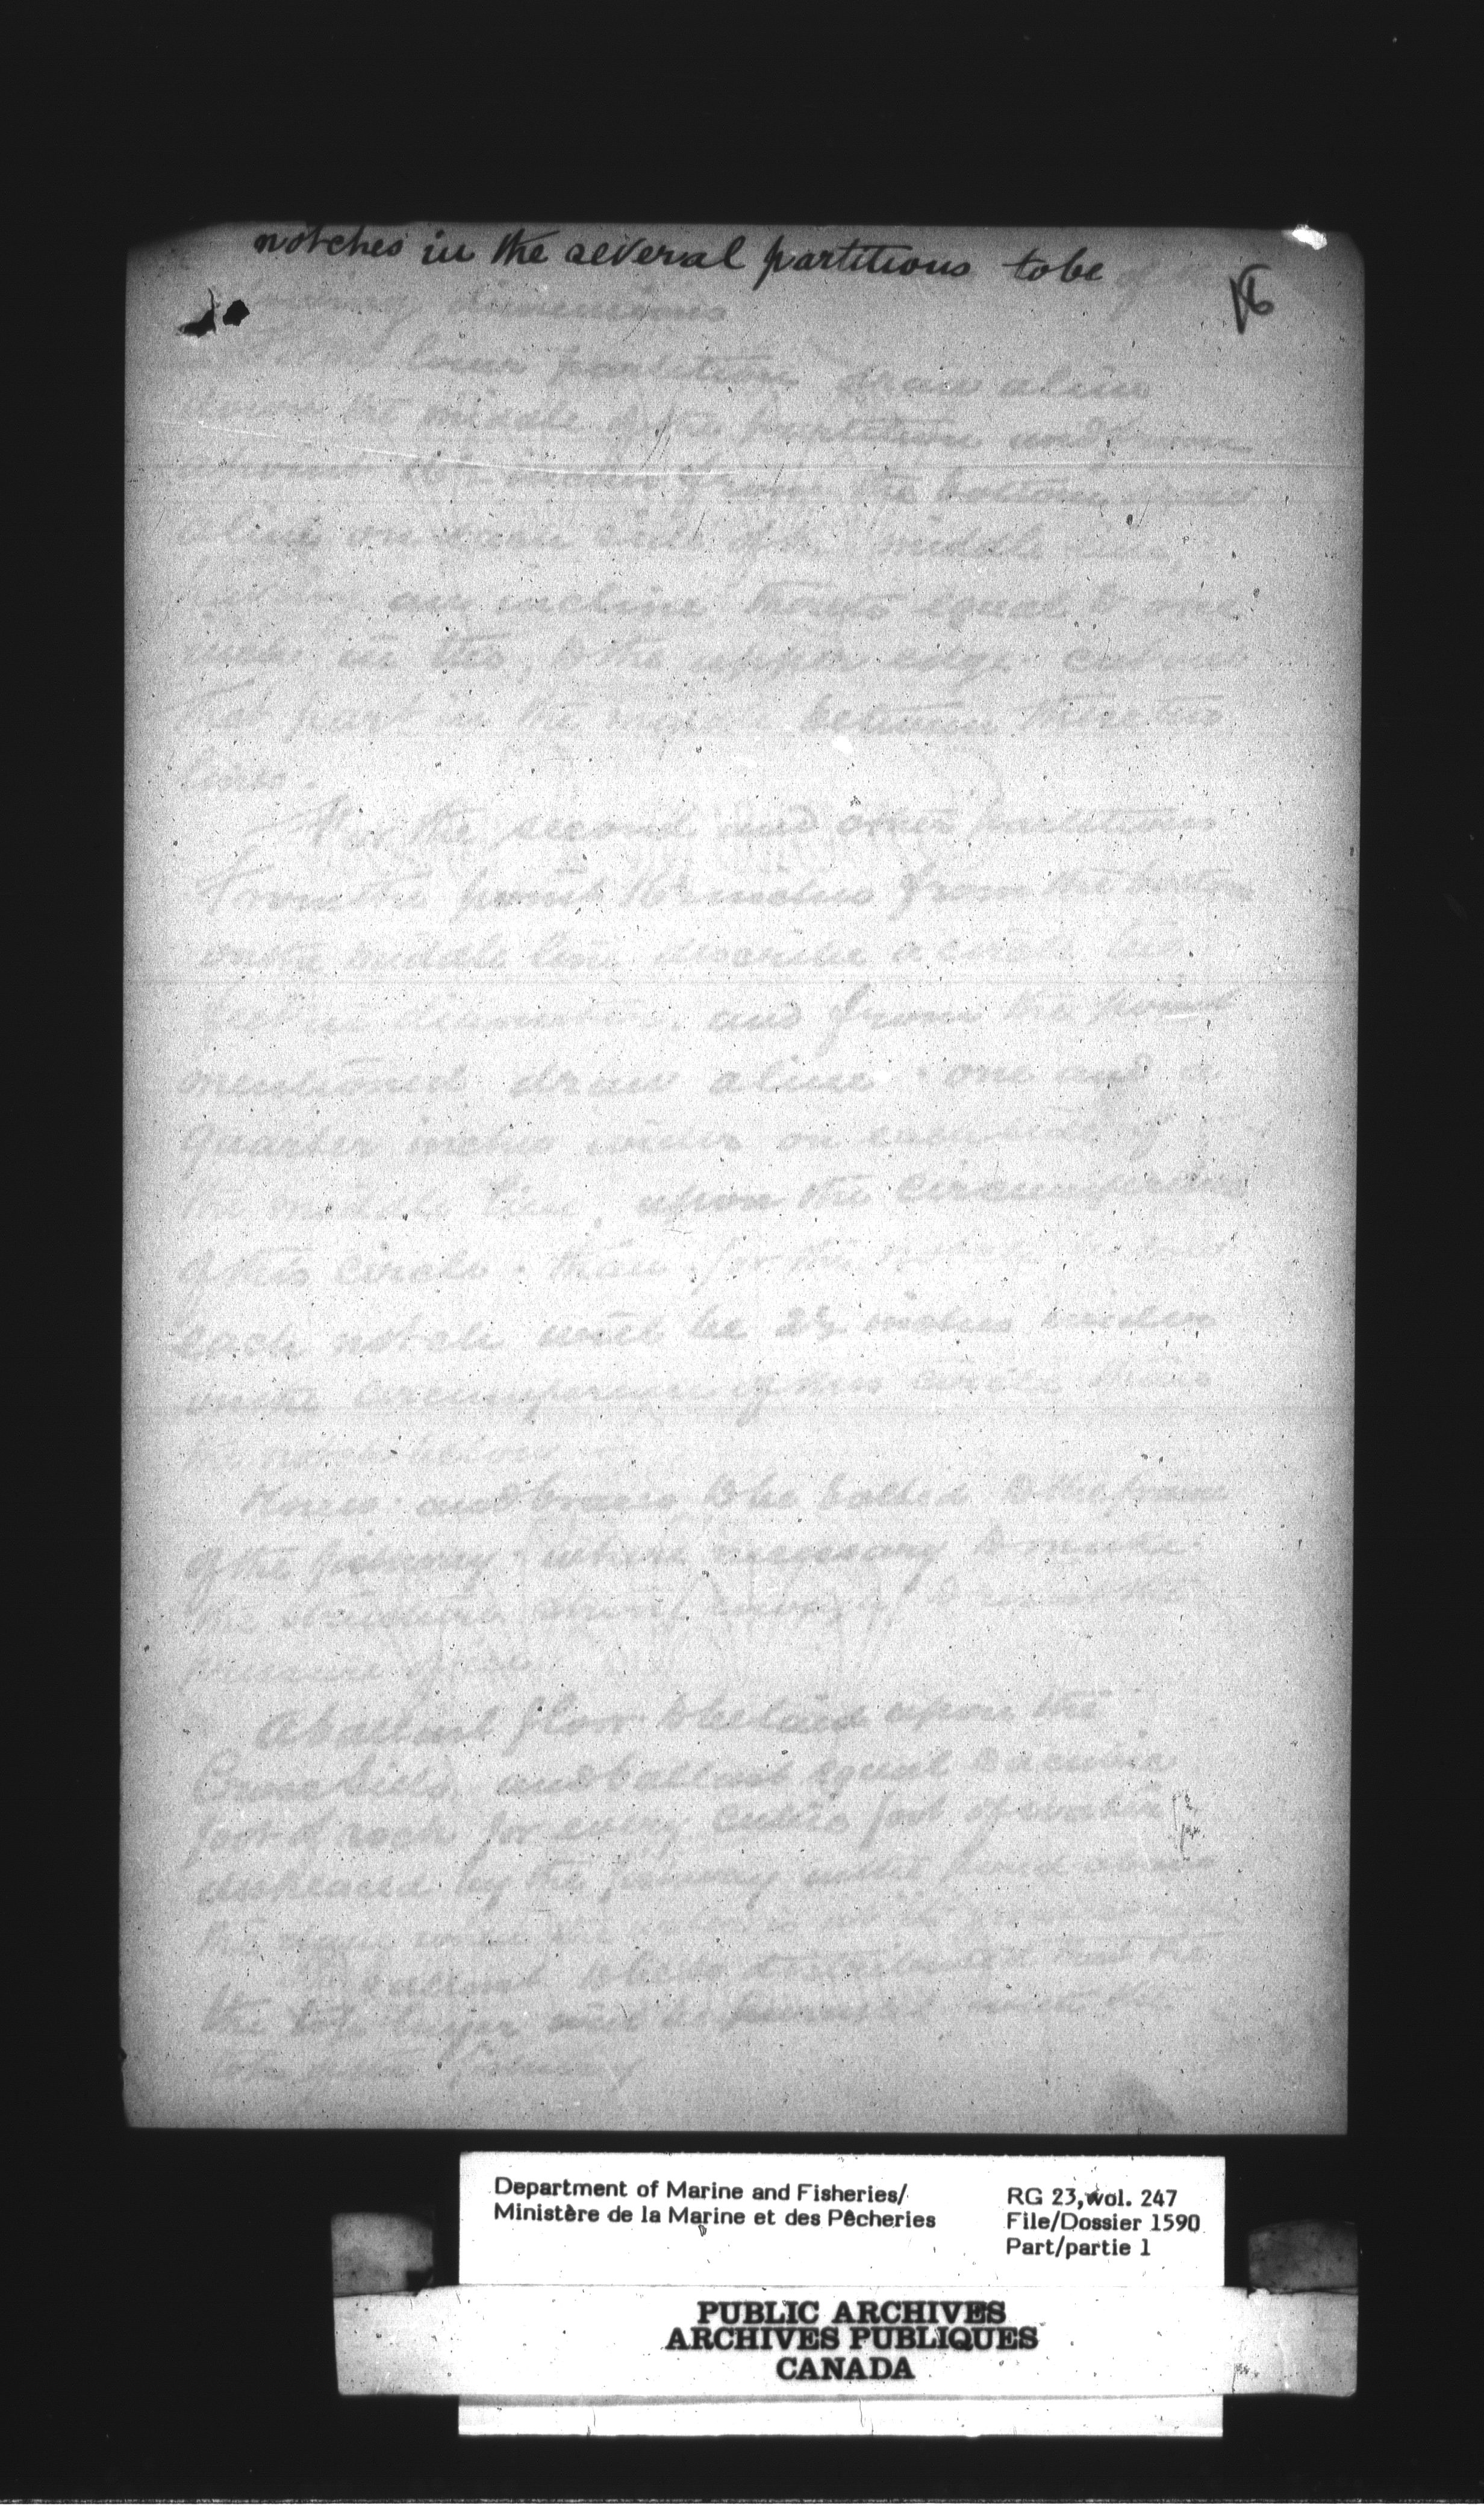 notches in the several partitions to be of the
16
following dimensions
lower partition draw a line
down the middle of the partition and from
a point 16½ inches from the bottom, draw
a line on each side of the middle line,
an incline equal to one
inch in two, to the upper edge. cut out
that part in the between these two
lines.
For the second and other partitions
From the point 16½ inches from the bottom
on the middle line describe a circle two
feet in diameter, and from the point
mentioned draw a line one and a
quarter inches wider on each side of
the middle line, upon the circumference
of this circle. than for the notch
each notch will be 2½ inches wider
on the circumference of this circle than
the notch below
Knees and braces to be bolted to the frame
of the fishway where necessary to make
the structure strong enough to resist the
pressure of ice
A ballast floor to be laid upon the
Cross sills, and ballast equal to a cubic
foot of rock for every cubic foot of water
displaced by the fishway must
the dam when the water is
ballast to be so distributed that the
the
fishway
Department of Marine and Fisheries/
Ministère de la Marine et des Pêcheries
RG 23, vol. 247
File/Dossier 1590
Part/partie 1
PUBLIC ARCHIVES
ARCHIVES PUBLIQUES
CANADA